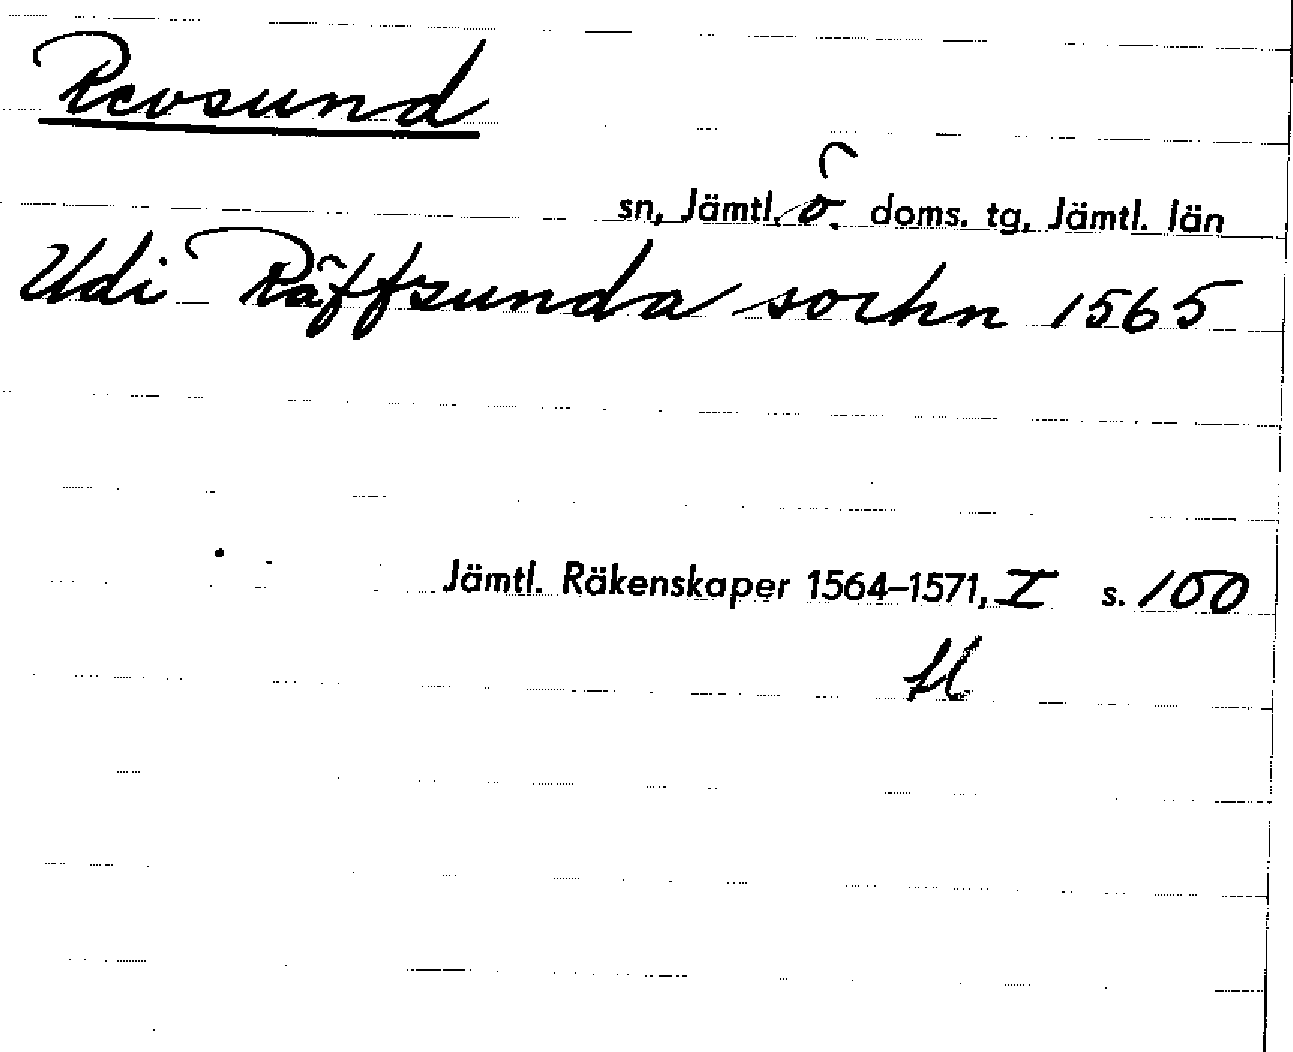 Revsund
sn, Jämtl. ö. doms. tg, Jämtl. län
Udi Räffsunda sochn 1565
Jämtl. Räkenskaper 1564–1571, I s. 100